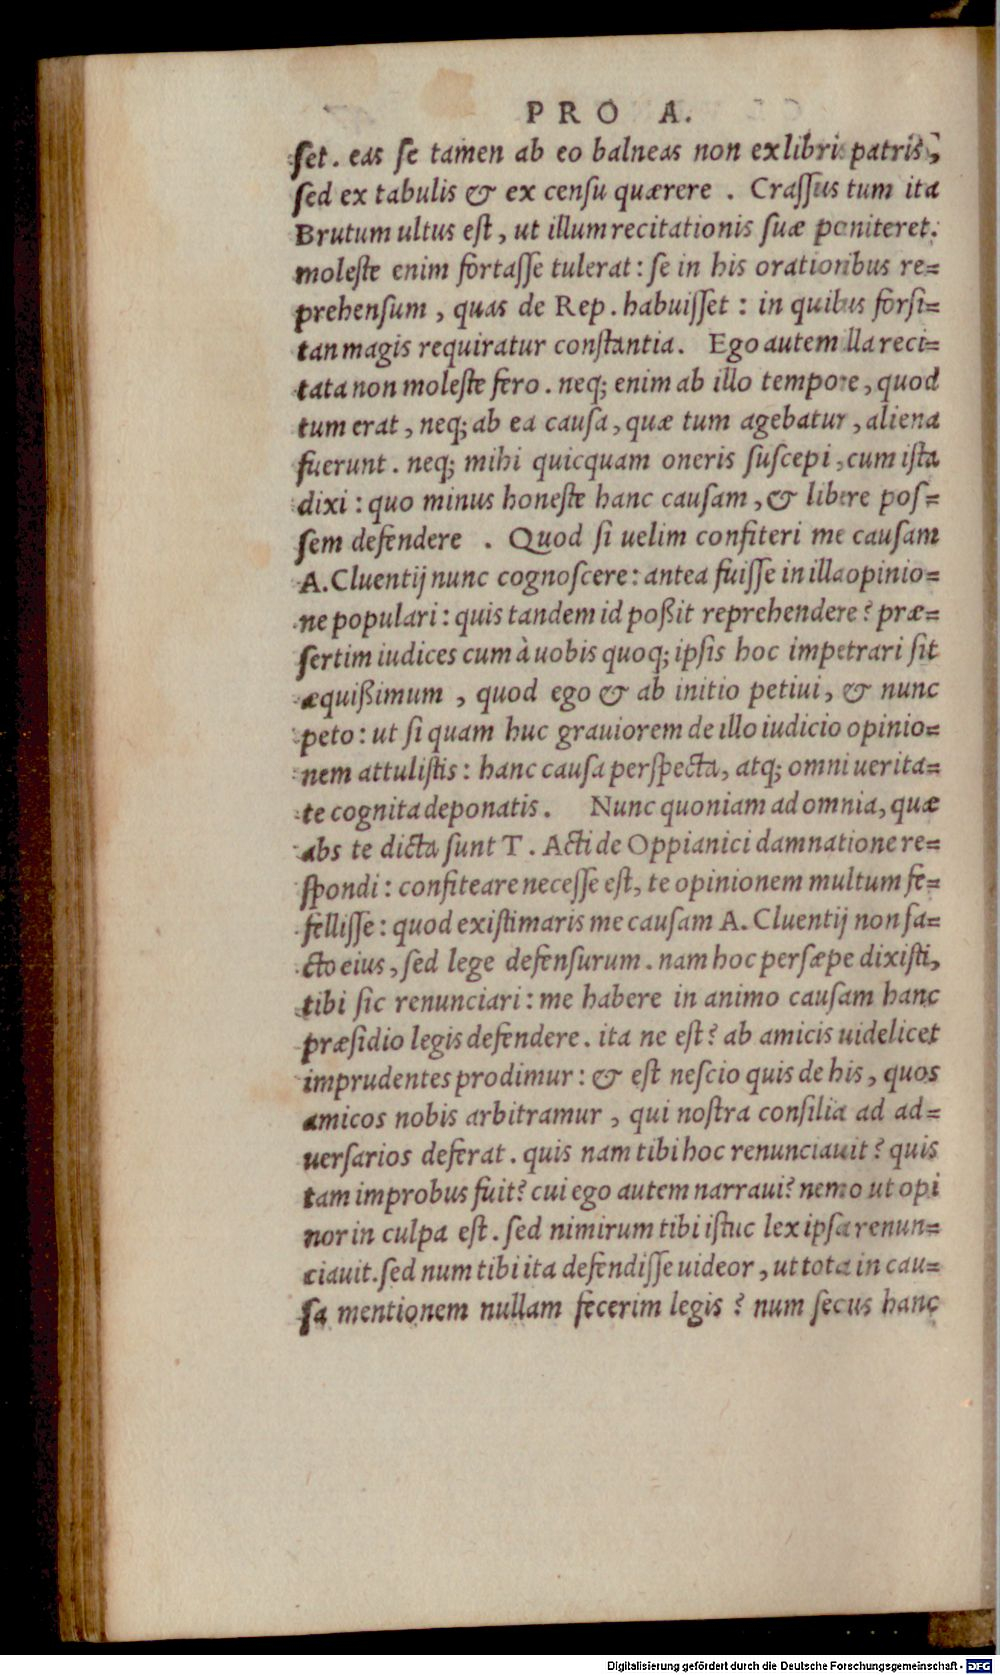 PRO A.
ſet. eas ſe tamen ab eo balneas non ex libris patris,
ſed ex tabulis & ex cenſu quærere . Craſſus tum ita
Brutum ultus eſt, ut illum recitationis ſuæ pœniteret.
moleſte enim fortaſſe tulerat: ſe in his orationibus re=
prehenſum, quas de Rep. habuiſſet: in quibus forſi=
tan magis requiratur conſtantia. Ego autem illa reci=
tata non moleſte fero. neq; enim ab illo tempore, quod
tum erat, neq; ab ea cauſa, quæ tum agebatur, aliena
fuerunt. neq; mihi quicquam oneris ſuſcepi, cum iſta
dixi: quo minus honeſte hanc cauſam, & libere poſ=
ſem defendere . Quod ſi uelim confiteri me cauſam
A. Cluentij nunc cognoſcere: antea fuiſſe in illa opinio=
ne populari: quis tandem id poßit reprehendere? præ=
ſertim iudices cum à uobis quoq; ipſis hoc impetrari ſit
æquißimum, quod ego & ab initio petiui, & nunc
peto: ut ſi quam huc grauiorem de illo iudicio opinio=
nem attuliſtis: hanc cauſa perſpecta, atq; omni uerita=
te cognita deponatis. Nunc quoniam ad omnia, quæ
abs te dicta ſunt T. Acti de Oppianici damnatione re=
ſpondi: confiteare neceſſe eſt, te opinionem multum fe=
felliſſe: quod exiſtimaris me cauſam A. Cluentij non fa=
cto eius, ſed lege defenſurum. nam hoc perſæpe dixiſti,
tibi ſic renunciari: me habere in animo cauſam hanc
præſidio legis defendere. ita ne eſt? ab amicis uidelicet
imprudentes prodimur: & eſt neſcio quis de his, quos
amicos nobis arbitramur, qui noſtra conſilia ad ad=
uerſarios deferat. quis nam tibi hoc renunciauit? quis
tam improbus fuit? cui ego autem narraui? nemo ut opi
nor in culpa eſt. ſed nimirum tibi iſtuc lex ipſa renun=
ciauit. ſed num tibi ita defendiſſe uideor, ut tota in cau=
ſa mentionem nullam fecerim legis? num ſecus hanc
Digitalisierung gefördert durch die Deutsche Forschungsgemeinschaft - DFG